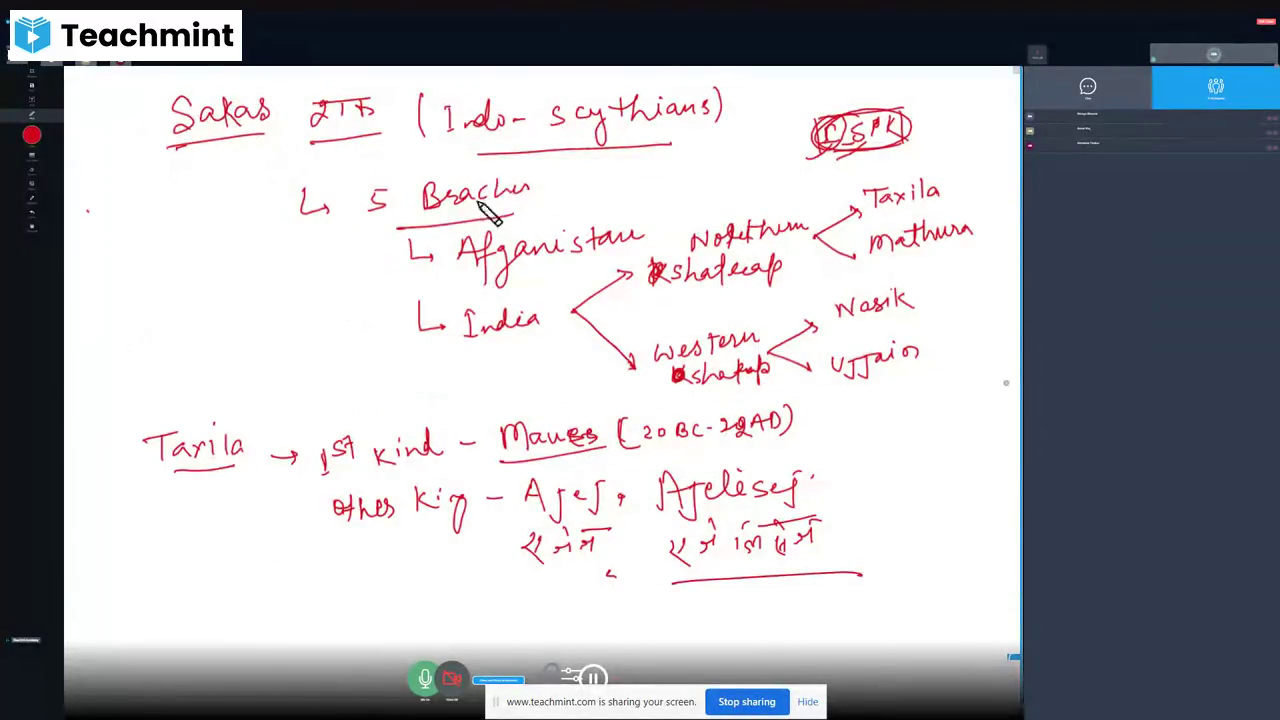 Teachmint
Sakas शक (Indo-scythians)
ISPK
↳ 5 Braches
↳ Afganistan
Northern Kshatrap
Taxila
Mathura
↳ India
Western Kshatrap
Nasik
Ujjain
Taxila → 1st Kind - Maues (20BC-22AD)
Other King - Ajej, Ajelisej
www.teachmint.com is sharing your screen.
Stop sharing
Hide